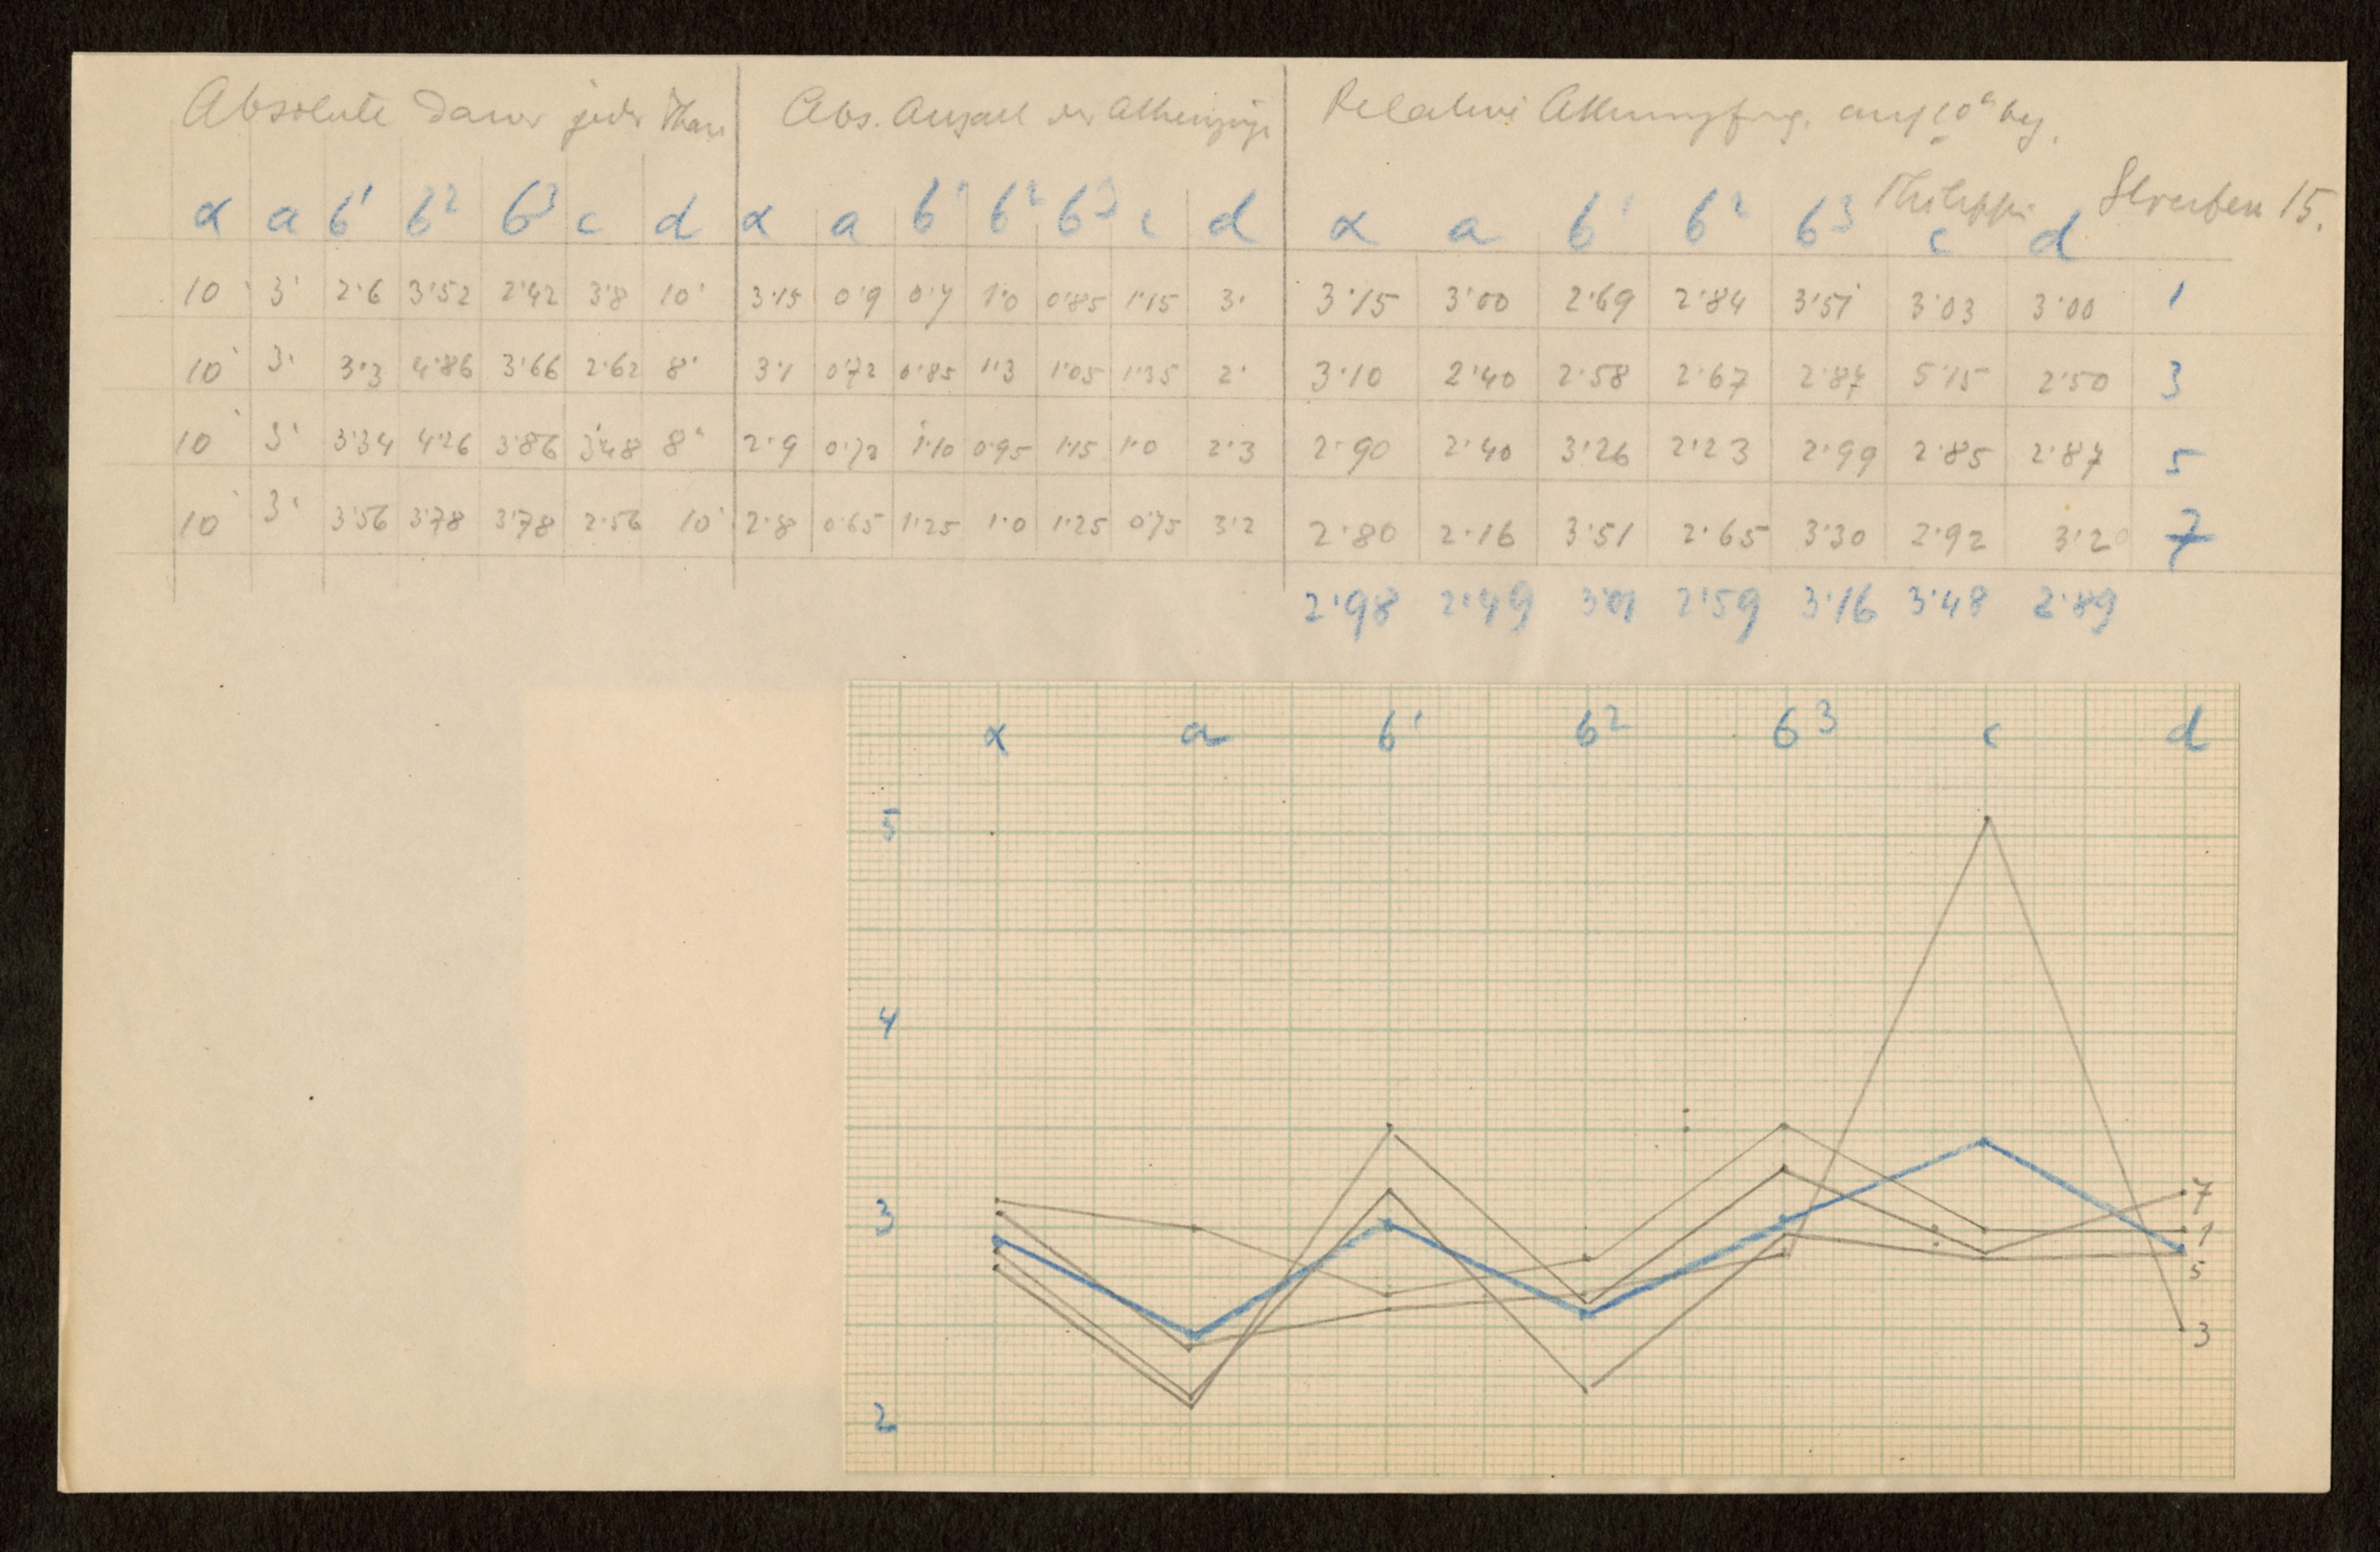 Absolute Dauer jeder Phase Abs. Anzahl der Athemzüge Relative Athmungsfreq. auf 10" bez.
Philippi Streuben 15.
α a b¹ b² b³ c d α a b¹ b² b³ c d α a b¹ b² b³ c d
10' 3' 2·6 3·52 2·42 3·8 10' 3·15 0·9 0·7 1·0 0·85 1·15 3· 3·15 3·00 2·69 2·84 3·51 3·03 3·00 1
10' 3' 3·3 4·86 3·66 2·62 8' 3·1 0·72 0·85 1·3 1·05 1·35 2· 3·10 2·40 2·58 2·67 2·87 5·15 2·50 3
10' 3' 3·34 4·26 3·86 3·48 8" 2·9 0·72 1·10 0·95 1·15 1·0 2·3 2·90 2·40 3·26 2·23 2·99 2·85 2·87 5
10' 3' 3·56 3·78 3·78 2·56 10' 2·8 0·65 1·25 1·0 1·25 0·75 3·2 2·80 2·16 3·51 2·65 3·30 2·92 3·20 7
2·98 2·49 3·01 2·59 3·16 3·48 2·89
α a b¹ b² b³ c d
5
4
3
2
7
1
5
3